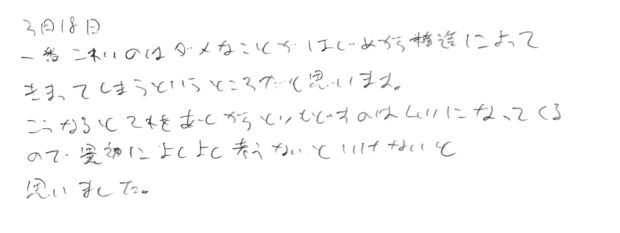 3月18日
一番こわいのはダメなことがはじめから構造によって
きまってしまうというところだと思います。
こうなるとそれをあとからといもどすのはムリになってくる
ので最初によくよく考えないといけないと
思いました。